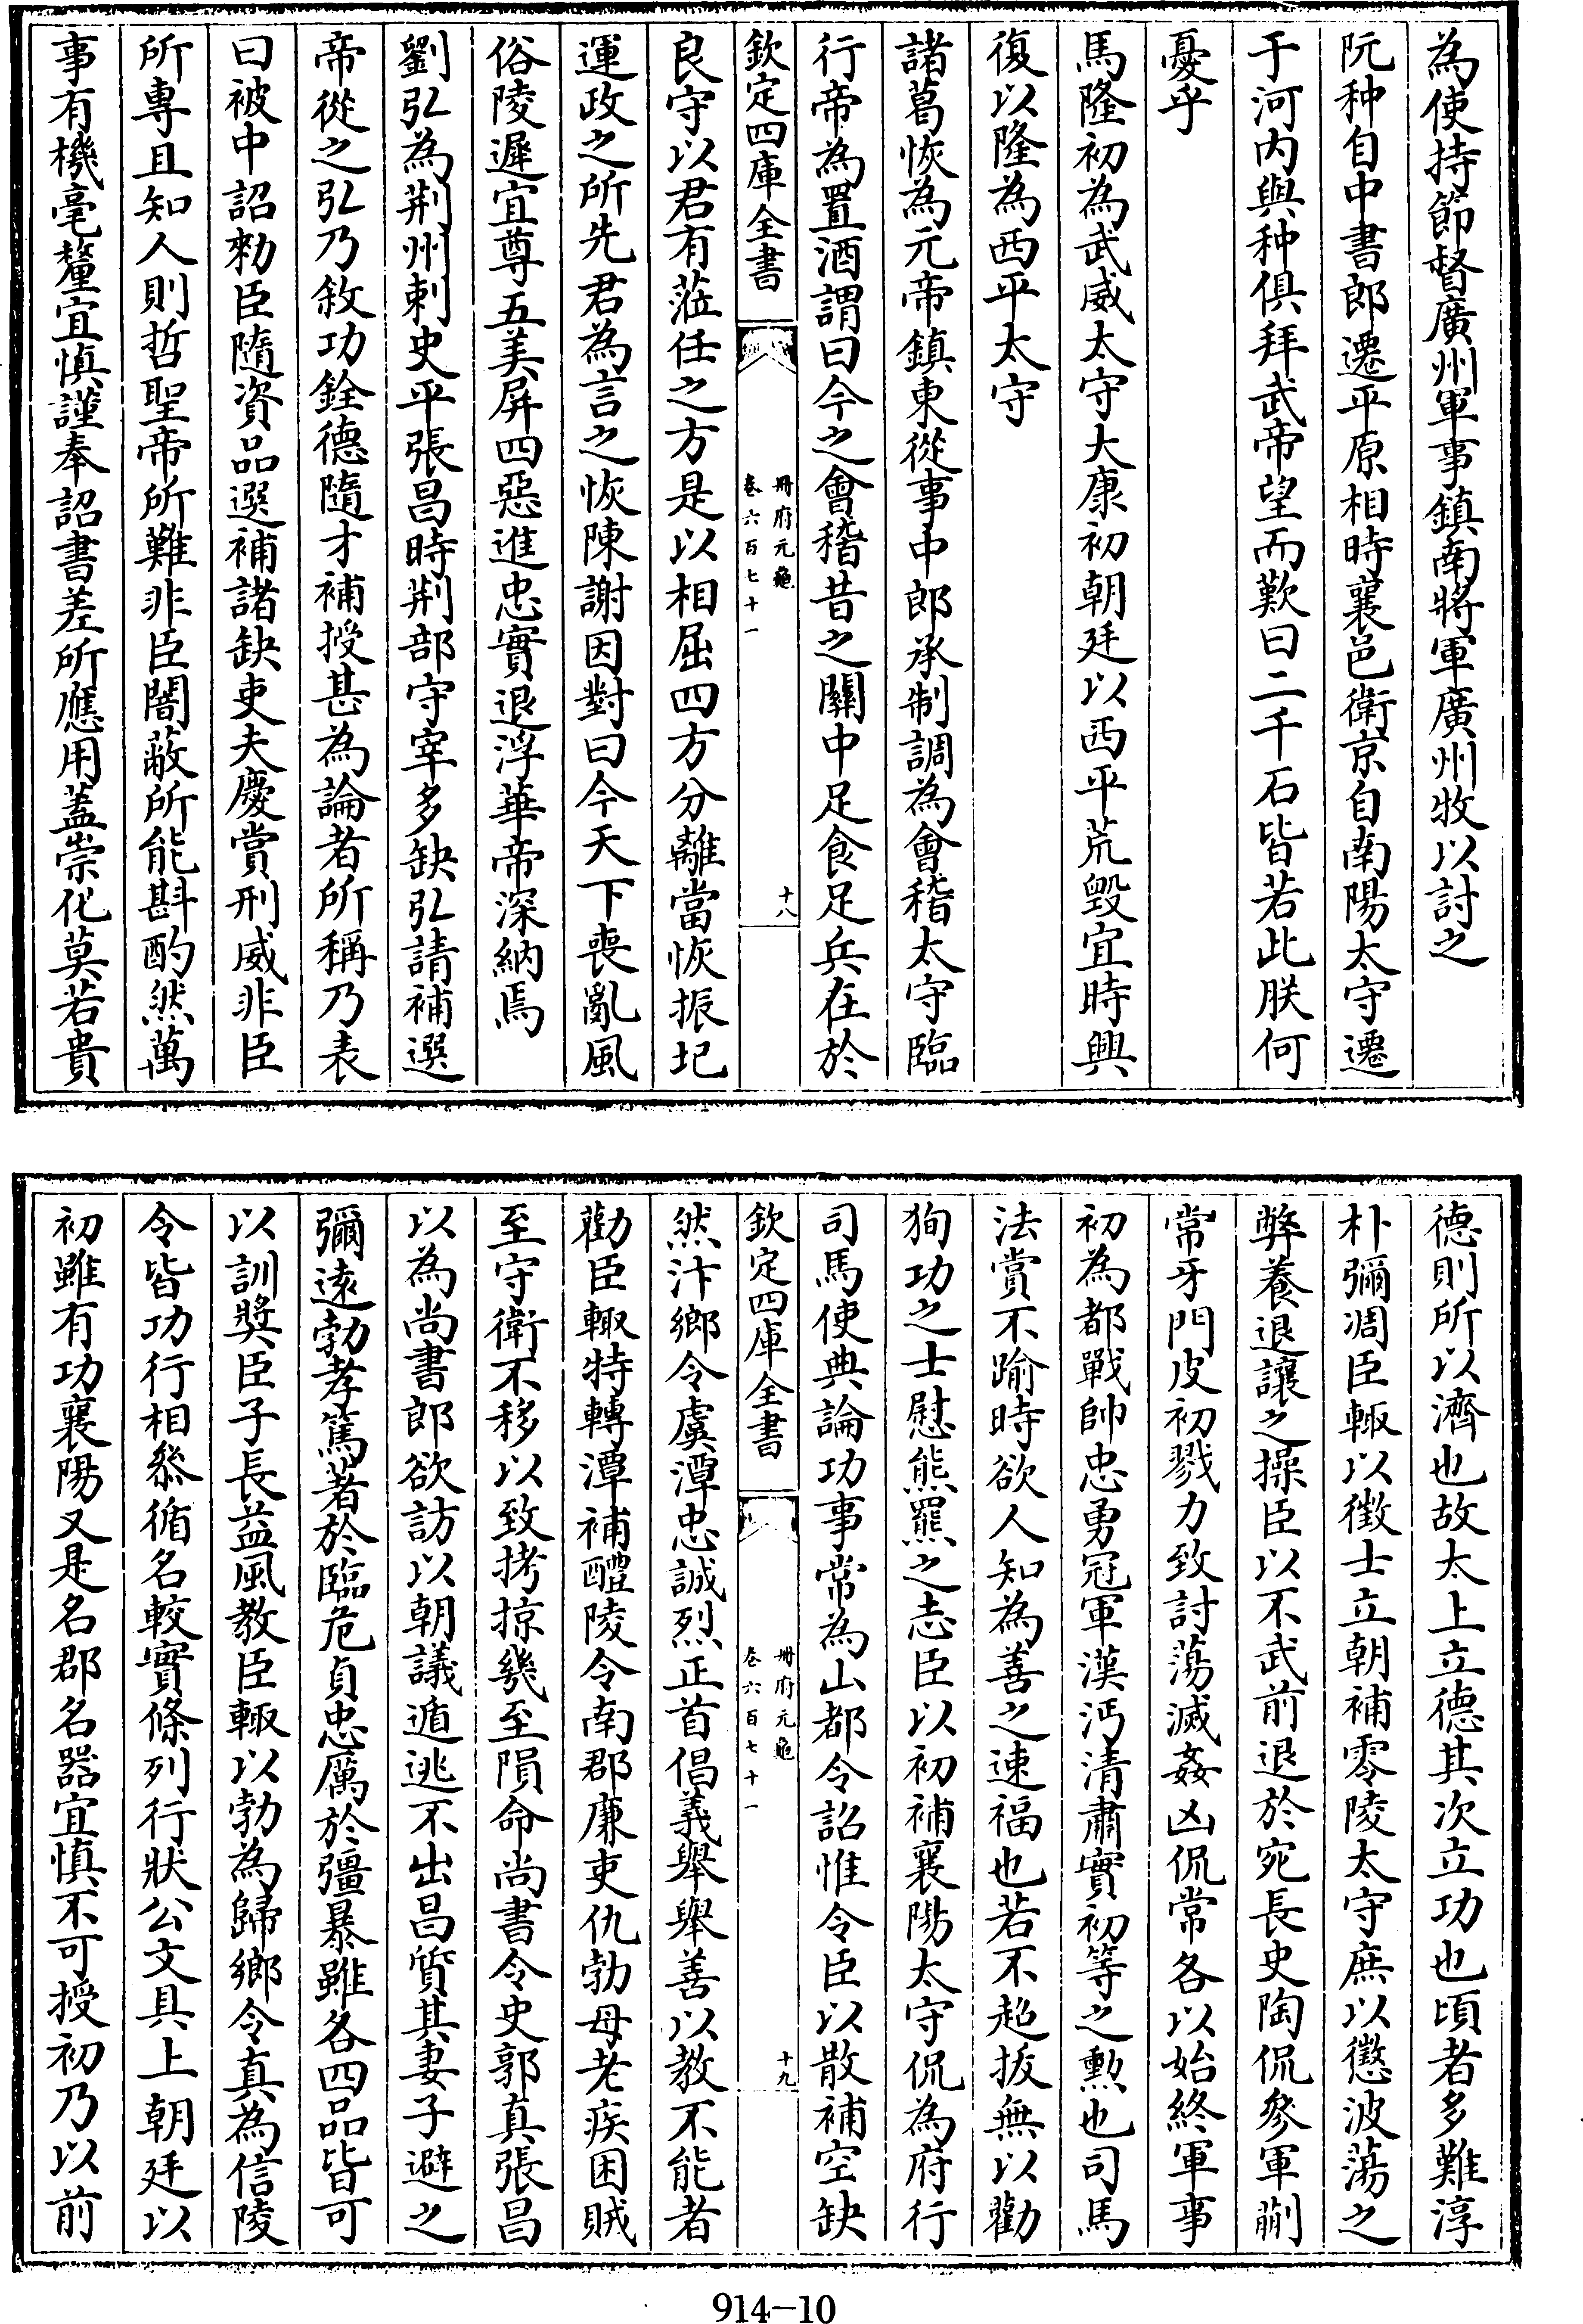 為使持節督廣州軍事鎮南將軍廣州牧以討之
阮种自中書郎遷平原相時襄邑衛京自南陽太守遷
于河内與种俱拜武帝望而歎曰二千石皆若此朕何
憂乎
馬隆初為武威太守大康初朝廷以西平荒毁宜時興
復以隆為西平太守
諸葛恢為元帝鎮東從事中郎承制調為會稽太守臨
行帝為置酒謂曰今之會稽昔之關中足食足兵在於
欽定四庫全書
冊府元龜
卷六百七十一
十八
良守以君有蒞任之方是以相屈四方分離當恢振圮
運政之所先君為言之恢陳謝因對曰今天下喪亂風
俗陵遲宜尊五美屏四惡進忠實退浮華帝深納焉
劉弘為荆州刺史平張昌時荆部守宰多缺弘請補選
帝從之弘乃敘功銓德隨才補授甚為論者所稱乃表
曰被中詔勑臣隨資品選補諸缺吏夫慶賞刑威非臣
所專且知人則哲聖帝所難非臣闇蔽所能斟酌然萬
事有機毫釐宜慎謹奉詔書差所應用蓋崇化莫若貴
德則所以濟也故太上立德其次立功也頃者多難淳
朴彌凋臣輙以徵士立朝補零陵太守庶以懲波蕩之
弊養退讓之操臣以不武前退於宛長史陶侃參軍蒯
常牙門皮初戮力致討蕩滅姦凶侃常各以始終軍事
初為都戰帥忠勇冠軍漢沔清肅實初等之勲也司馬
法賞不踰時欲人知為善之速福也若不超拔無以勸
狥功之士慰熊羆之志臣以初補襄陽太守侃為府行
司馬使典論功事常為山都令詔惟令臣以散補空缺
欽定四庫全書
冊府元龜
卷六百七十一
十九
然汴鄉令虞潭忠誠烈正首倡義舉舉善以教不能者
勸臣輙特轉潭補醴陵令南郡廉吏仇勃母老疾困賊
至守衛不移以致拷掠幾至隕命尚書令史郭真張昌
以為尚書郎欲訪以朝議遁逃不出昌質其妻子避之
彌遠勃孝篤著於臨危貞忠厲於彊暴雖各四品皆可
以訓獎臣子長益風教臣輙以勃為歸鄉令真為信陵
令皆功行相叅循名較實條列行狀公文具上朝廷以
初雖有功襄陽又是名郡名器宜慎不可授初乃以前
914-10